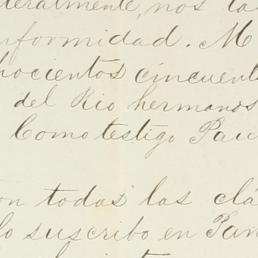 teralmente, nos la
nformidad. M
hocientos cincuent
del Rio hermanos
Como testigo Pau
on todas las clá
lo suscribo en Pam